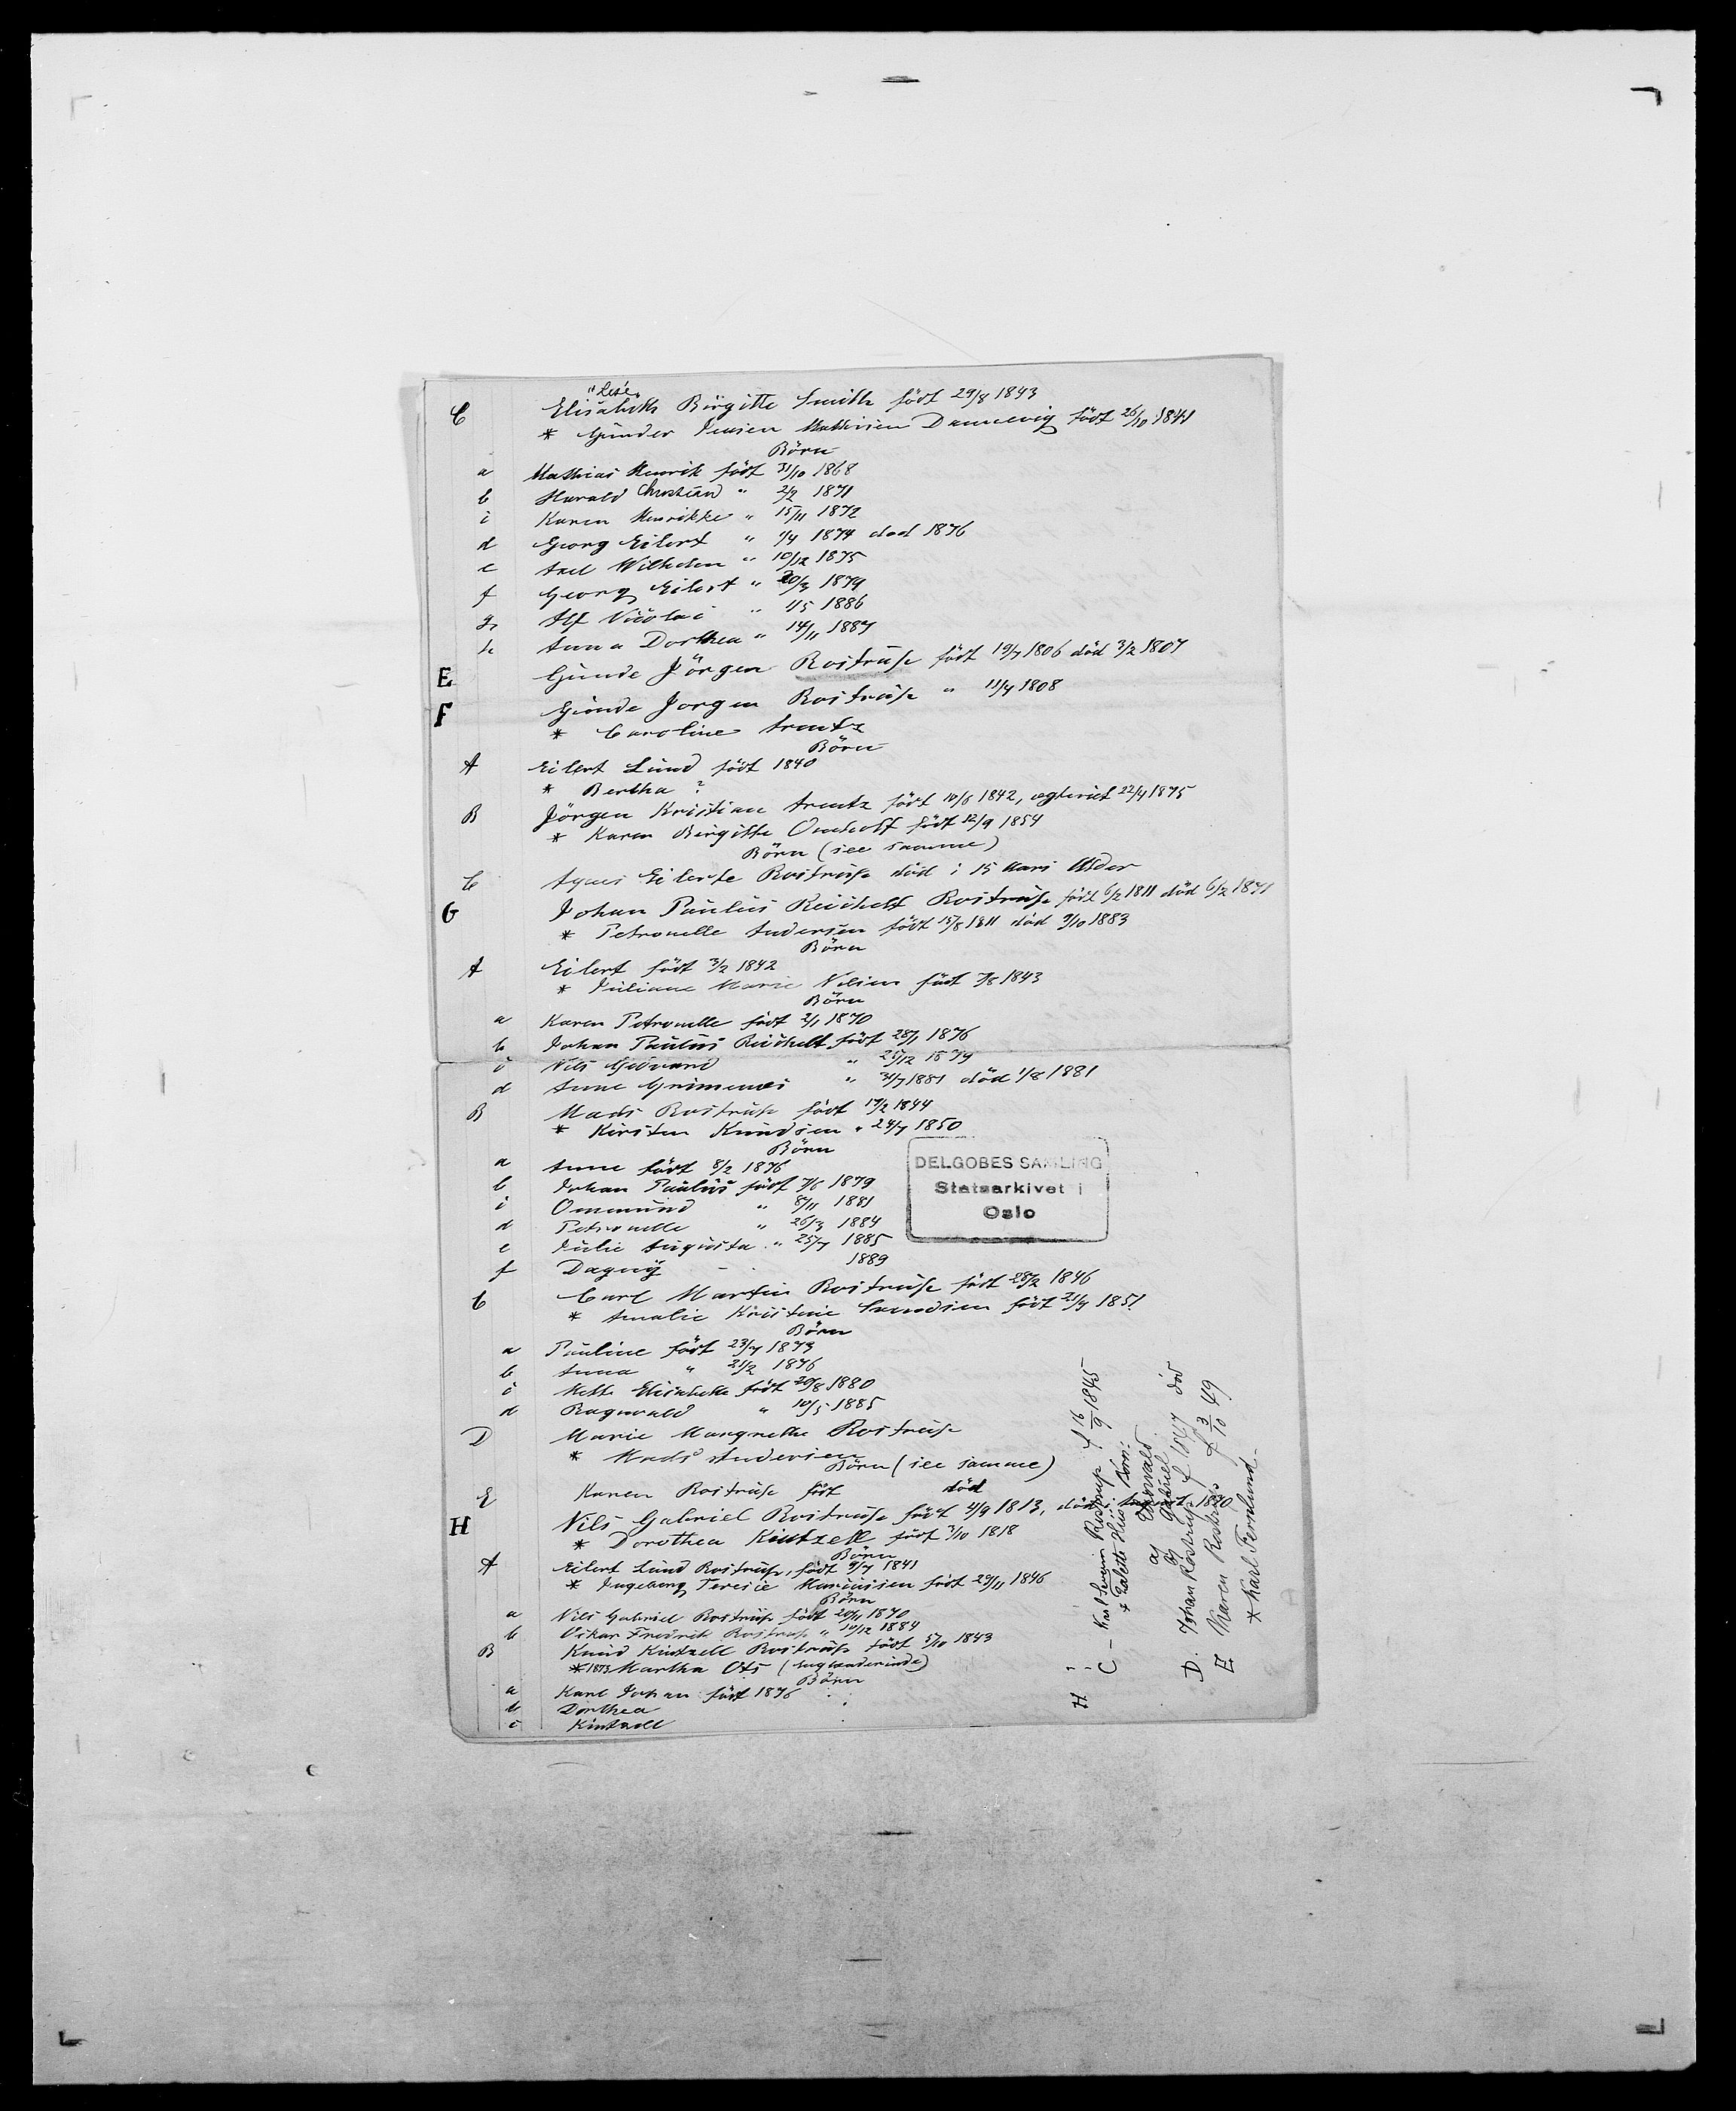 "Lese"
C Elisabeth Birgitte Smith födt 29/8 1843
* Günder Jensen Mathisen Dannevig födt 26/10 1841
Börn
a Mathias Henrik födt 31/10 1868
b Harald Christian " 2/2 1871
c Karen Henrikke " 15/11 1872
d Georg Eilert " 1/4 1874 död 1876
e Axel Wilhelm " 10/12 1875
f Georg Eilert " 20/3 1879
g Alf Nicolai " 1/5 1886
h Anna Dorthea " 14/11 1887
E Günde Jörgen Rostrup födt 19/7 1806 död 3/2 1807
F Günde Jorgen Rostrup " 11/4 1808
* Caroline Arentz
Börn
A Eilert Lund födt 1840
* Bertha ?
B Jörgen Kristian Arentz födt 10/6 1842, ægteviet 22/4 1875
* Karen Birgitte Omholt födt 12/9 1854
Börn (see samme)
C Agnes Eilerte Rostrup död i 15 Aars Alder
G Johan Paulus Reichelt Rostrup födt 6/2 1811 död 6/2 1871
* Petronelle Andersen födt 15/8 1811 död 9/10 1883
Börn
A Eilert födt 3/2 1842
* Juliane Marie Nilsen födt 7/8 1843
Börn
a Karen Petronelle födt 2/1 1870
b Johan Paulus Reichelt födt 28/1 1876
c Nils Edvard " 25/12 1879
d Anne Grimenes " 31/7 1881 död 1/8 1881
B Mads Rostrup födt 17/2 1844
* Kirsten Knudsen " 24/7 1850
Börn
a Anne födt 8/2 1876
b Johan Paulus födt 7/6 1879
c Ommund " 8/11 1881
d Petronelle " 26/3 1884
e Julie Augusta " 25/7 1885
f Dagny 1889
DELGOBES SAMLING
Statsarkivet i
Oslo
C Carl Martin Rostrup födt 28/2 1846
* Amalie Kristine Svendsen födt 21/4 1851
Börn
a Pauline födt 23/7 1873
b Anna " 21/2 1876
c Mette Elisabeth födt 20/8 1880
d Ragnvald " 10/5 1885
D Marie Margrethe Rostrup
* Mads Andersen
Börn (see samme)
E Karen Rostrup födt död
H Nils Gabriel Rostrup födt 4/9 1813, död i 1890
* Dorothea Kintzell födt 3/10 1818
Börn
A Eilert Lund Rostrup, födt 9/7 1841
* Ingeborg Teresie födt 29/11 1846
Börn
a Nils Gabriel Rostrup födt 20/11 1870
b Oskar Fredrik Rostrup " 10/12 1884
B Knud Kintzell Rostrup födt 5/10 1843
* 1873 Martha Ots (Englænderinde)
Börn
a Karl Johan födt 1876
b Dorthea
c Kintzell
H C – Karl Severin Rostrup f 16/9 1845
* Börn:
a) Thorvald
b) Gabriel
D. Johan Rostrup f 1847 död
E Karen Rostrup f 3/10 49
* Karl Fernlund